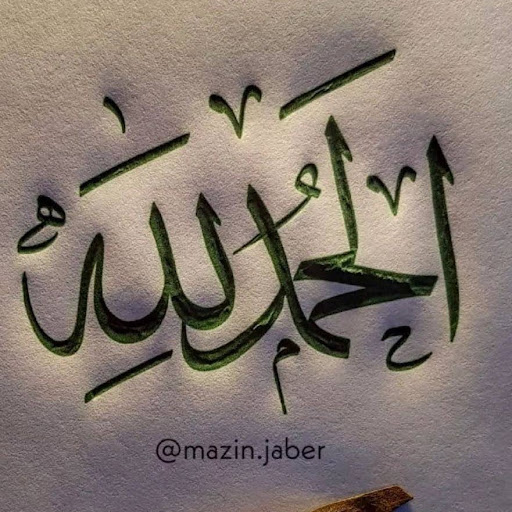 الحمد لله
@mazin.jaber